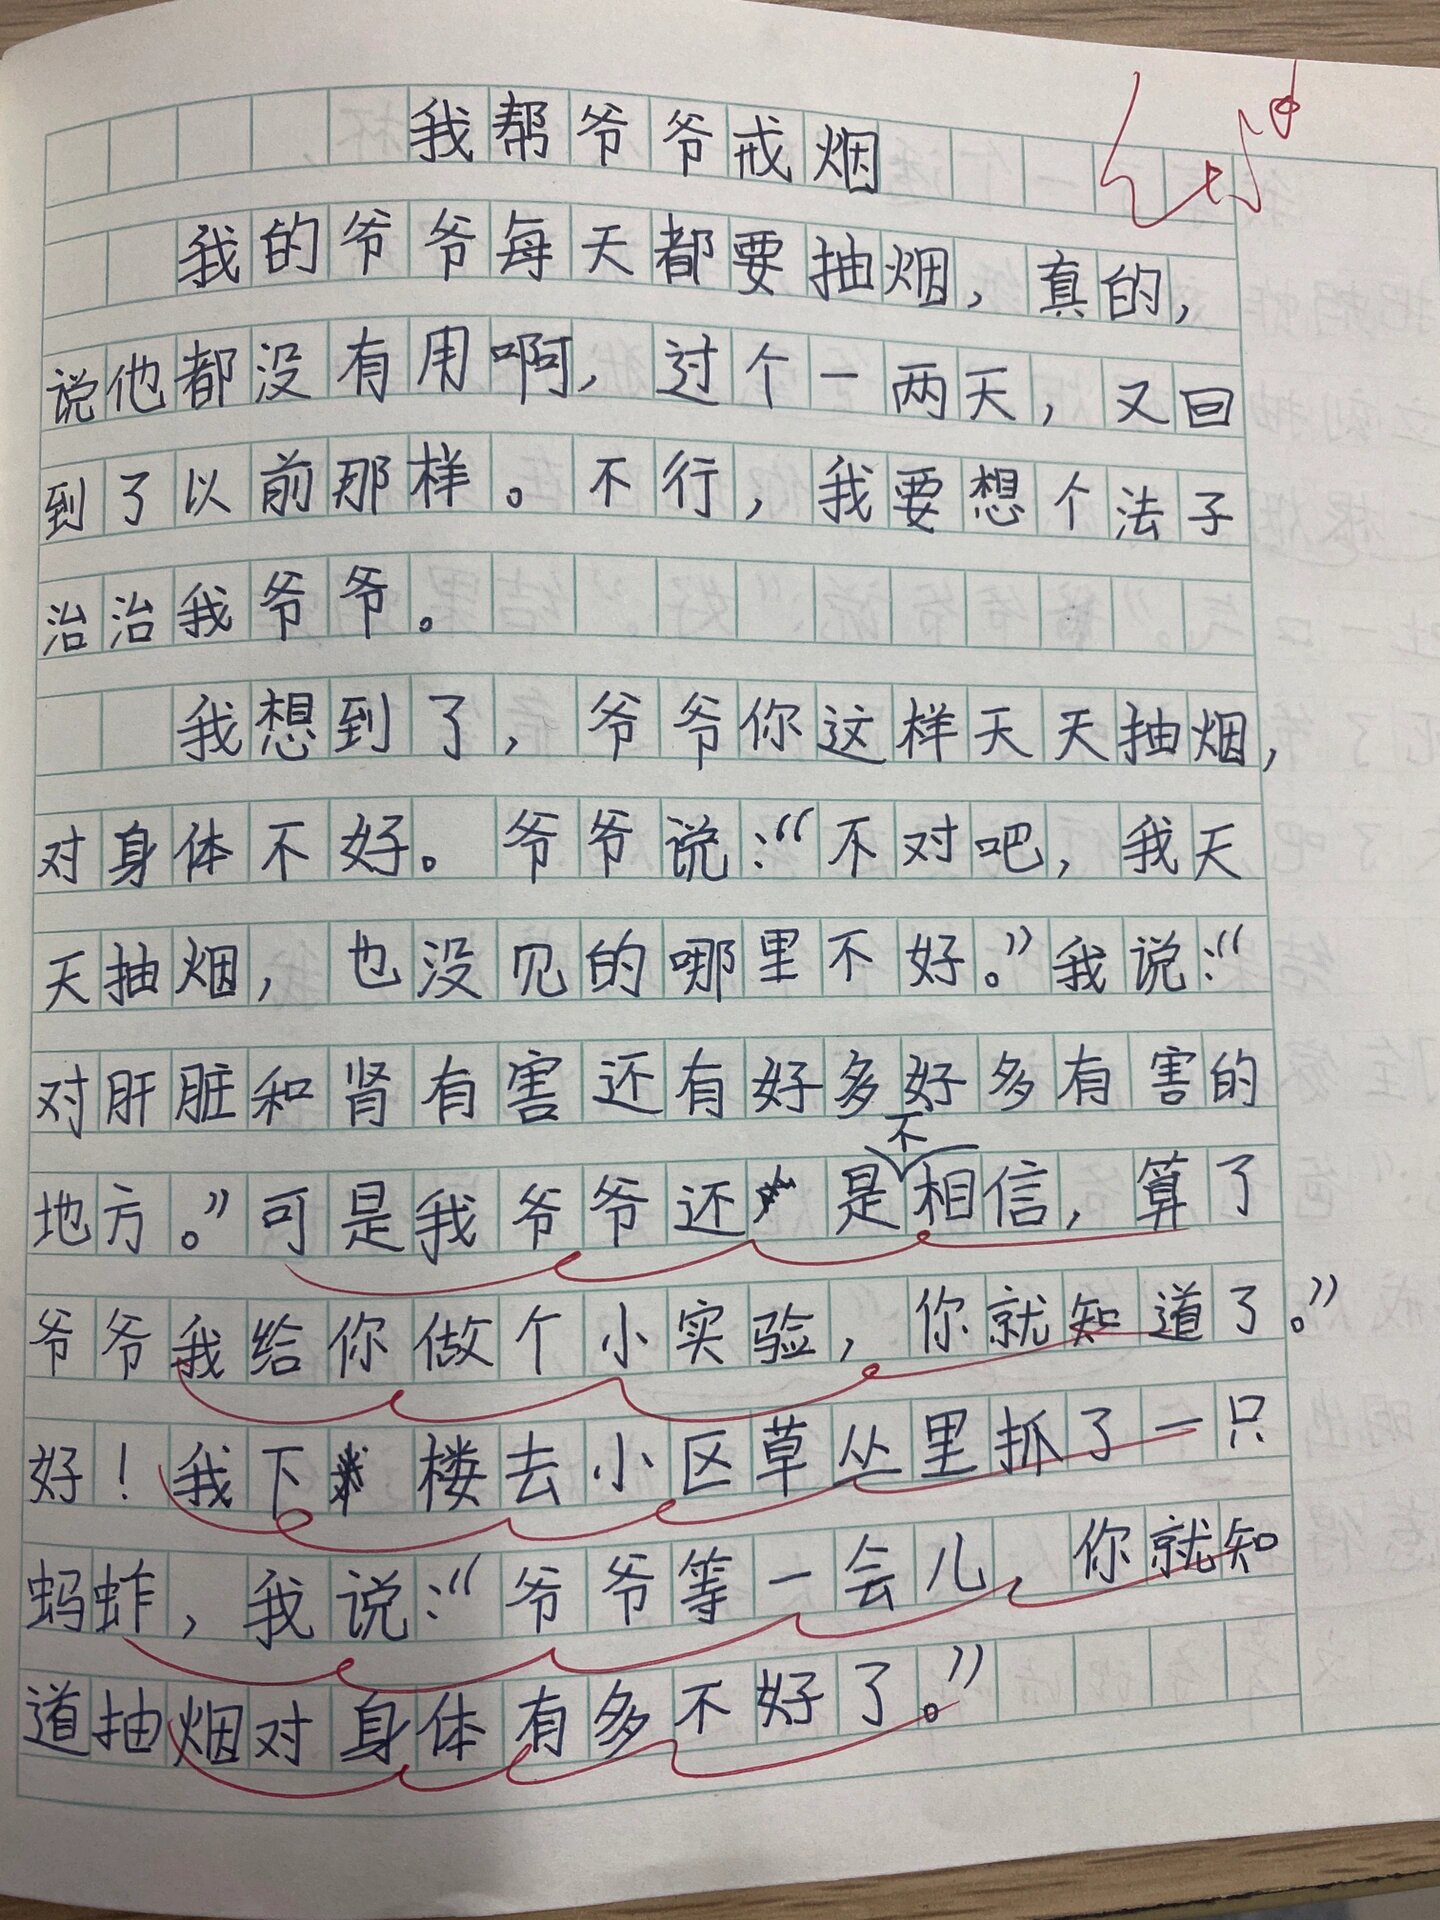 我帮爷爷戒烟
我的爷爷每天都要抽烟，真的，
说他都没有用啊，过个一两天，又回
到了以前那样。不行，我要想个法子
治治我爷爷。
我想到了，爷爷你这样天天抽烟，
对身体不好。爷爷说：“不对吧，我天
天抽烟，也没见的哪里不好。”我说：“
对肝脏和肾有害还有好多好多有害的
地方。”可是我爷爷还是不相信，算了
爷爷我给你做个小实验，你就知道了。”
好！我下楼去小区草丛里抓了一只
蚂蚱，我说：“爷爷等一会儿，你就知
道抽烟对身体有多不好了。”